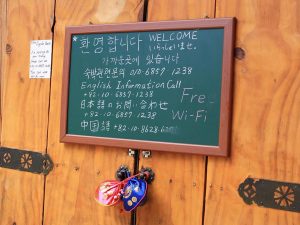 *환영합니다 WELCOME
いらっしゃいませ.
가까운곳에 있습니다
숙박관련문의 010-6857-1238
English Information Call
+82-10-6857-1238
日本語のお問い合わせ
+82-10-6857-1238
中国語 +82-10-8628-
Free
Wi-Fi